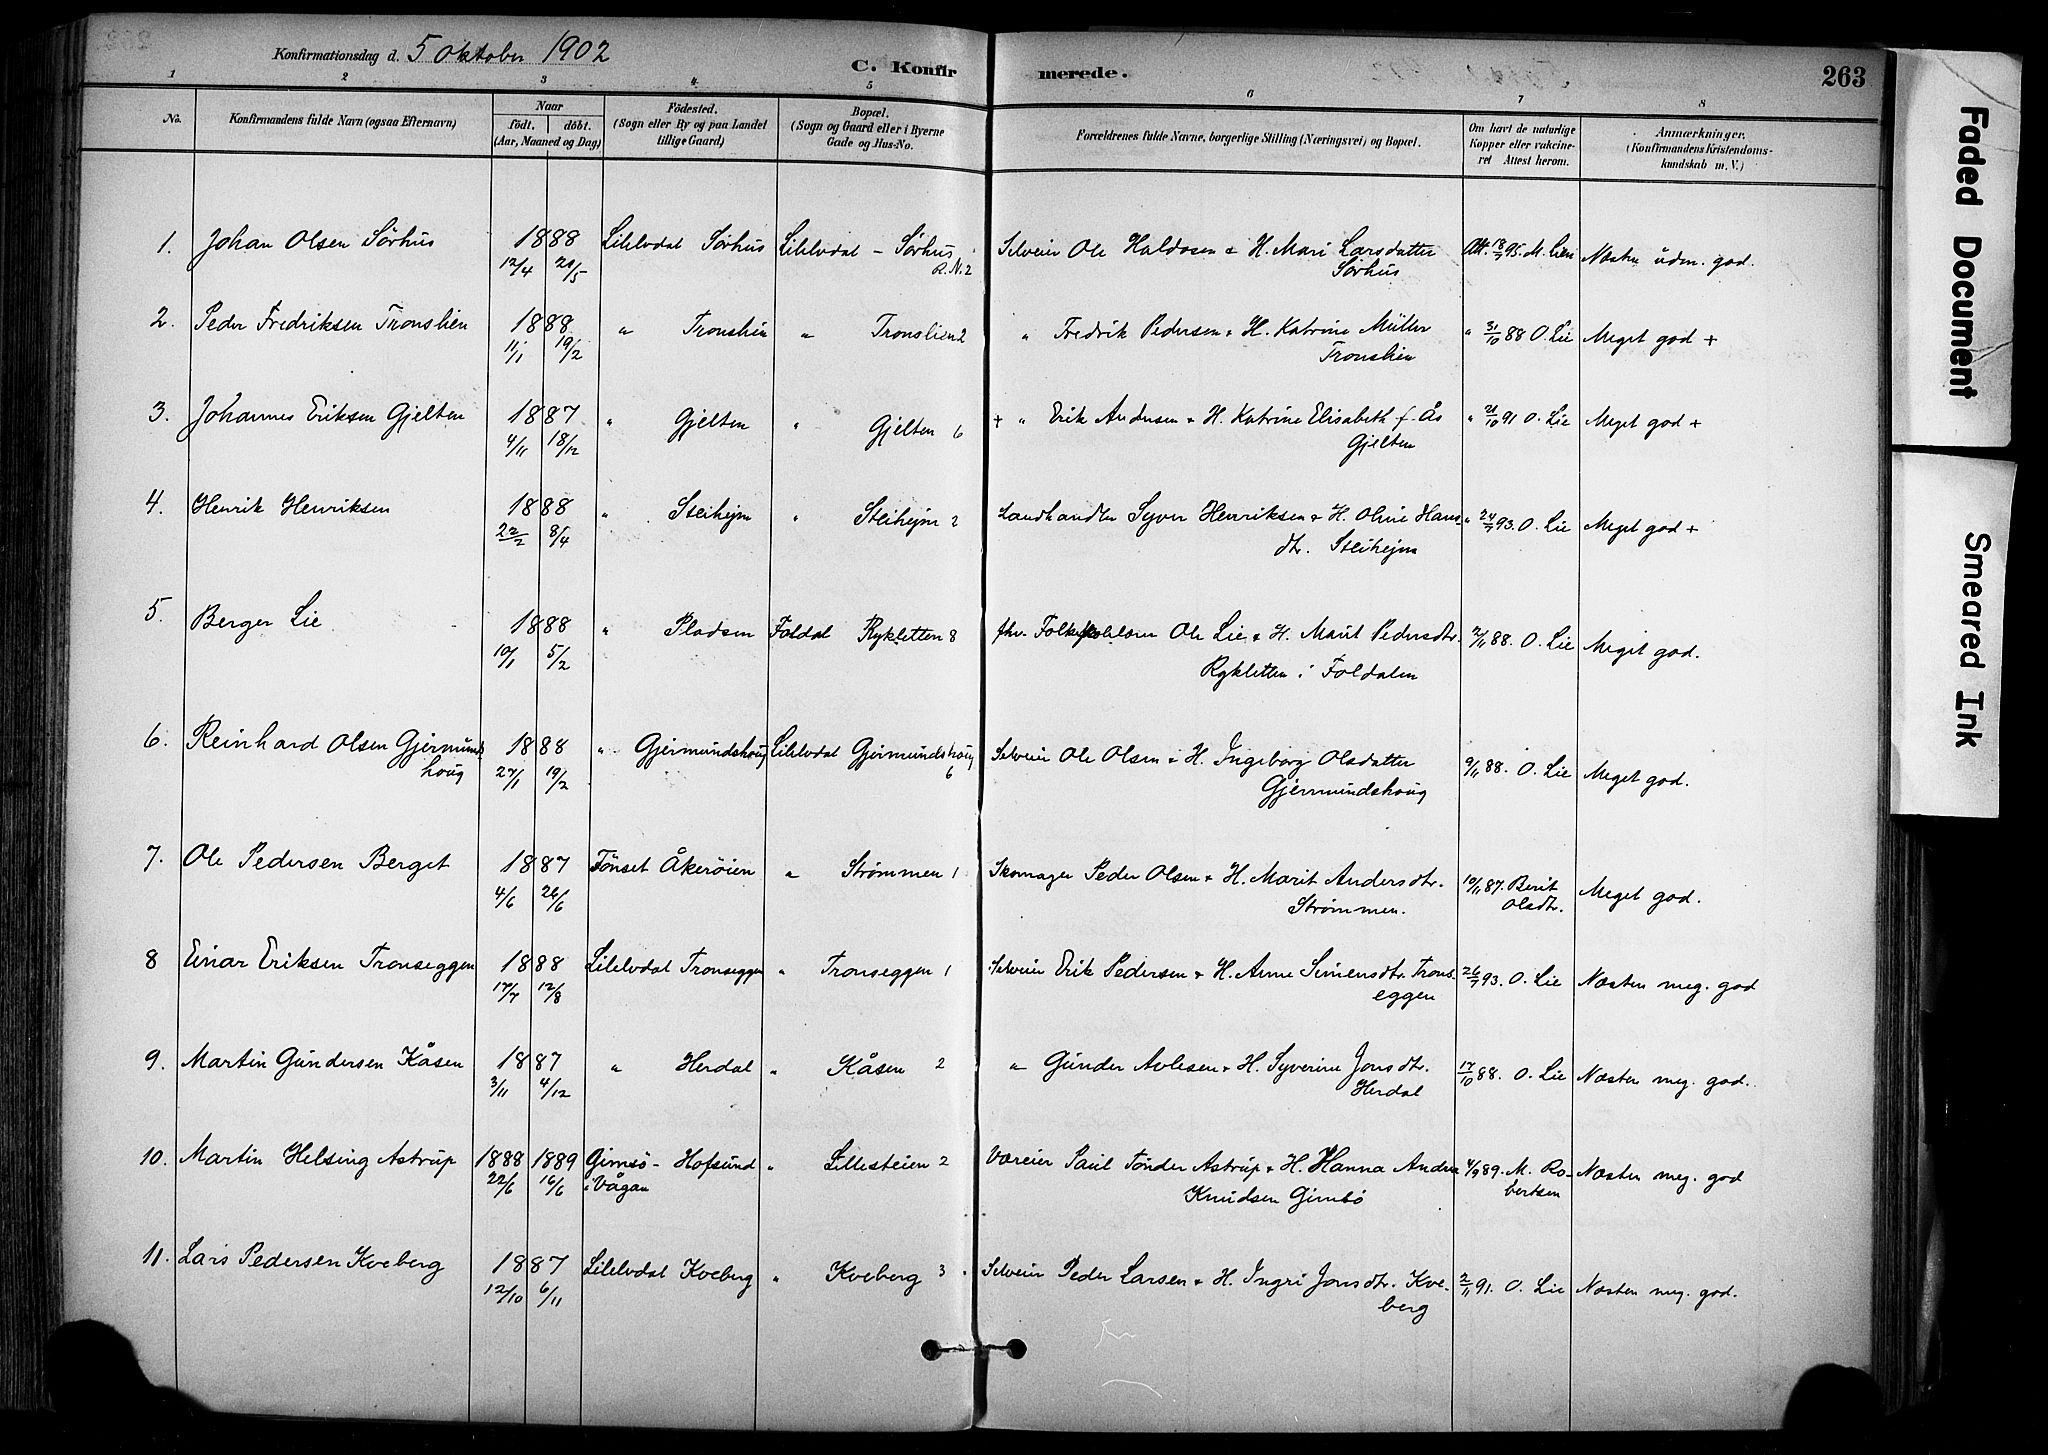 Konfirmationsdag d. 5 Oktober 1902
C. Konfirmerede.
263
1 2 3 4 5 6 7 8
No. Konfirmandens fulde Navn (ogsaa Efternavn) Naar født. døbt. (Aar, Maaned og Dag) Födested. (Sogn eller By og paa Landet tillige Gaard) Bopæl. (Sogn og Gaard eller i Byerne Gade og Hus-No. Forældrenes fulde Navne, borgerlige Stilling (Næringsvei) og Bopæl. Om havt de naturlige Kopper eller vakcineret Attest herom. Anmærkninger. (Konfirmandens Kristendomskundskab m. V.)
1. Johan Olsen Sørhus 1888 Lilelvdal Sørhus Lilelvdal - Sørhus Selveier Ole Haldosen & H. Mari Larsdatter Att. 18/7 95. M. Lien Næsten udm. god.
12/4 20/5 R.N. 2 Sørhus
2. Peder Fredriksen Tronslien 1888 " Tronslien " Tronslien 2 " Fredrik Pedersen & H. Katrine Müller " 31/10 88 O. Lie Meget god +
11/1 19/2 Tronslien
3. Johannes Eriksen Gjelten 1887 " Gjelten " Gjelten 6 + " Erik Andersen & H. Katrine Elisabeth f. Ås " 21/10 91 O. Lie Meget god +
4/11 18/12 Gjelten
4. Henrik Henriksen 1888 " Steihejm " Steihejm 2 Landhandler Syver Henriksen & H. Oline Hans- " 24/7 93. O. Lie Meget god +
22/2 8/4 dtr. Steihejm
5. Berger Lie 1888 " Pladsen Foldal Rykletten 8 fhv. Folkeskolelærer Ole Lie & H. Marit Pedersdtr. 2/11 88. O. Lie Meget god.
10/1 5/2 Rykletten i Foldalen
6. Reinhard Olsen Gjermunds- 1888 " Gjermundshoug Lilelvdal Gjermundshoug Selveier Ole Olsen & H. Ingeborg Olsdatter 9/11 88. O. Lie Meget god.
houg 27/1 19/2 6 Gjermundshoug
7. Ole Pedersen Berget 1887 Tönset Åkerøien " Strømmen 1 Skomager Peder Olsen & H. Marit Andersdtr. 10/11 87. Berit Meget god.
4/6 26/6 Strømmen. Olsdtr.
8 Einar Eriksen Tronseggen 1888 Lilelvdal Tronseggen " Tronseggen 1 Selveier Erik Pedersen & H. Anne Simensdtr. Trons- 26/7 93. O. Lie Næsten meg. god
17/7 12/8 eggen
9. Martin Gundersen Kåsen 1887 " Herdal " Kåsen 2 " Gunder Avlesen & H. Syverine Jonsdtr. 17/10 88. O. Lie Næsten meg. god.
3/11 4/12 Herdal
10. Martin Helsing Astrup 1888 1889 Gimsö - Hofsund " Lillesteien 2 Væreier Paul Tönder Astrup & H. Hanna Andrea 4/9 89. M. Ro- Næsten meg. god
22/6 16/6 i Vågan Knudsen Gimsö bertsen
11. Lars Pedersen Kveberg 1887 Lilelvdal Kveberg " Kveberg 3 Selveier Peder Larsen & H. Ingri Jonsdtr. Kve- 2/11 91. O. Lie Næsten meg. god.
12/10 6/11 berg
Faded Document
Smeared Ink